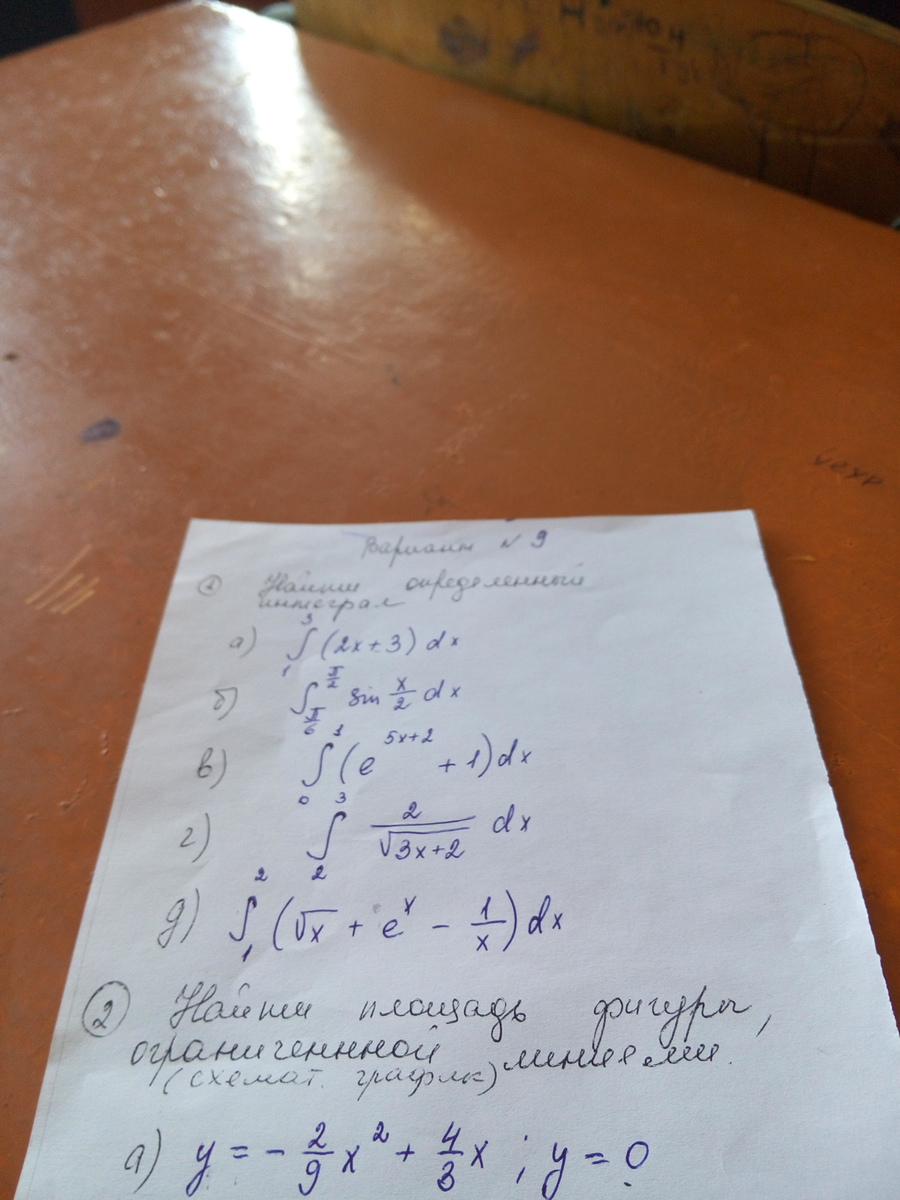 Вариант N 9
① Найти определенный
интеграл
а) ∫₁³ (2x+3) dx
б) ∫_{π/6}^{π/2} sin x/2 dx
в) ∫₀¹ (e^{5x+2} + 1) dx
г) ∫₂³ 2/√(3x+2) dx
д) ∫₁² (√x + e^x − 1/x) dx
② Найти площадь фигуры,
ограниченнной линиями.
(схемат. график)
а) y = − 2/9 x² + 4/3 x ; y = 0